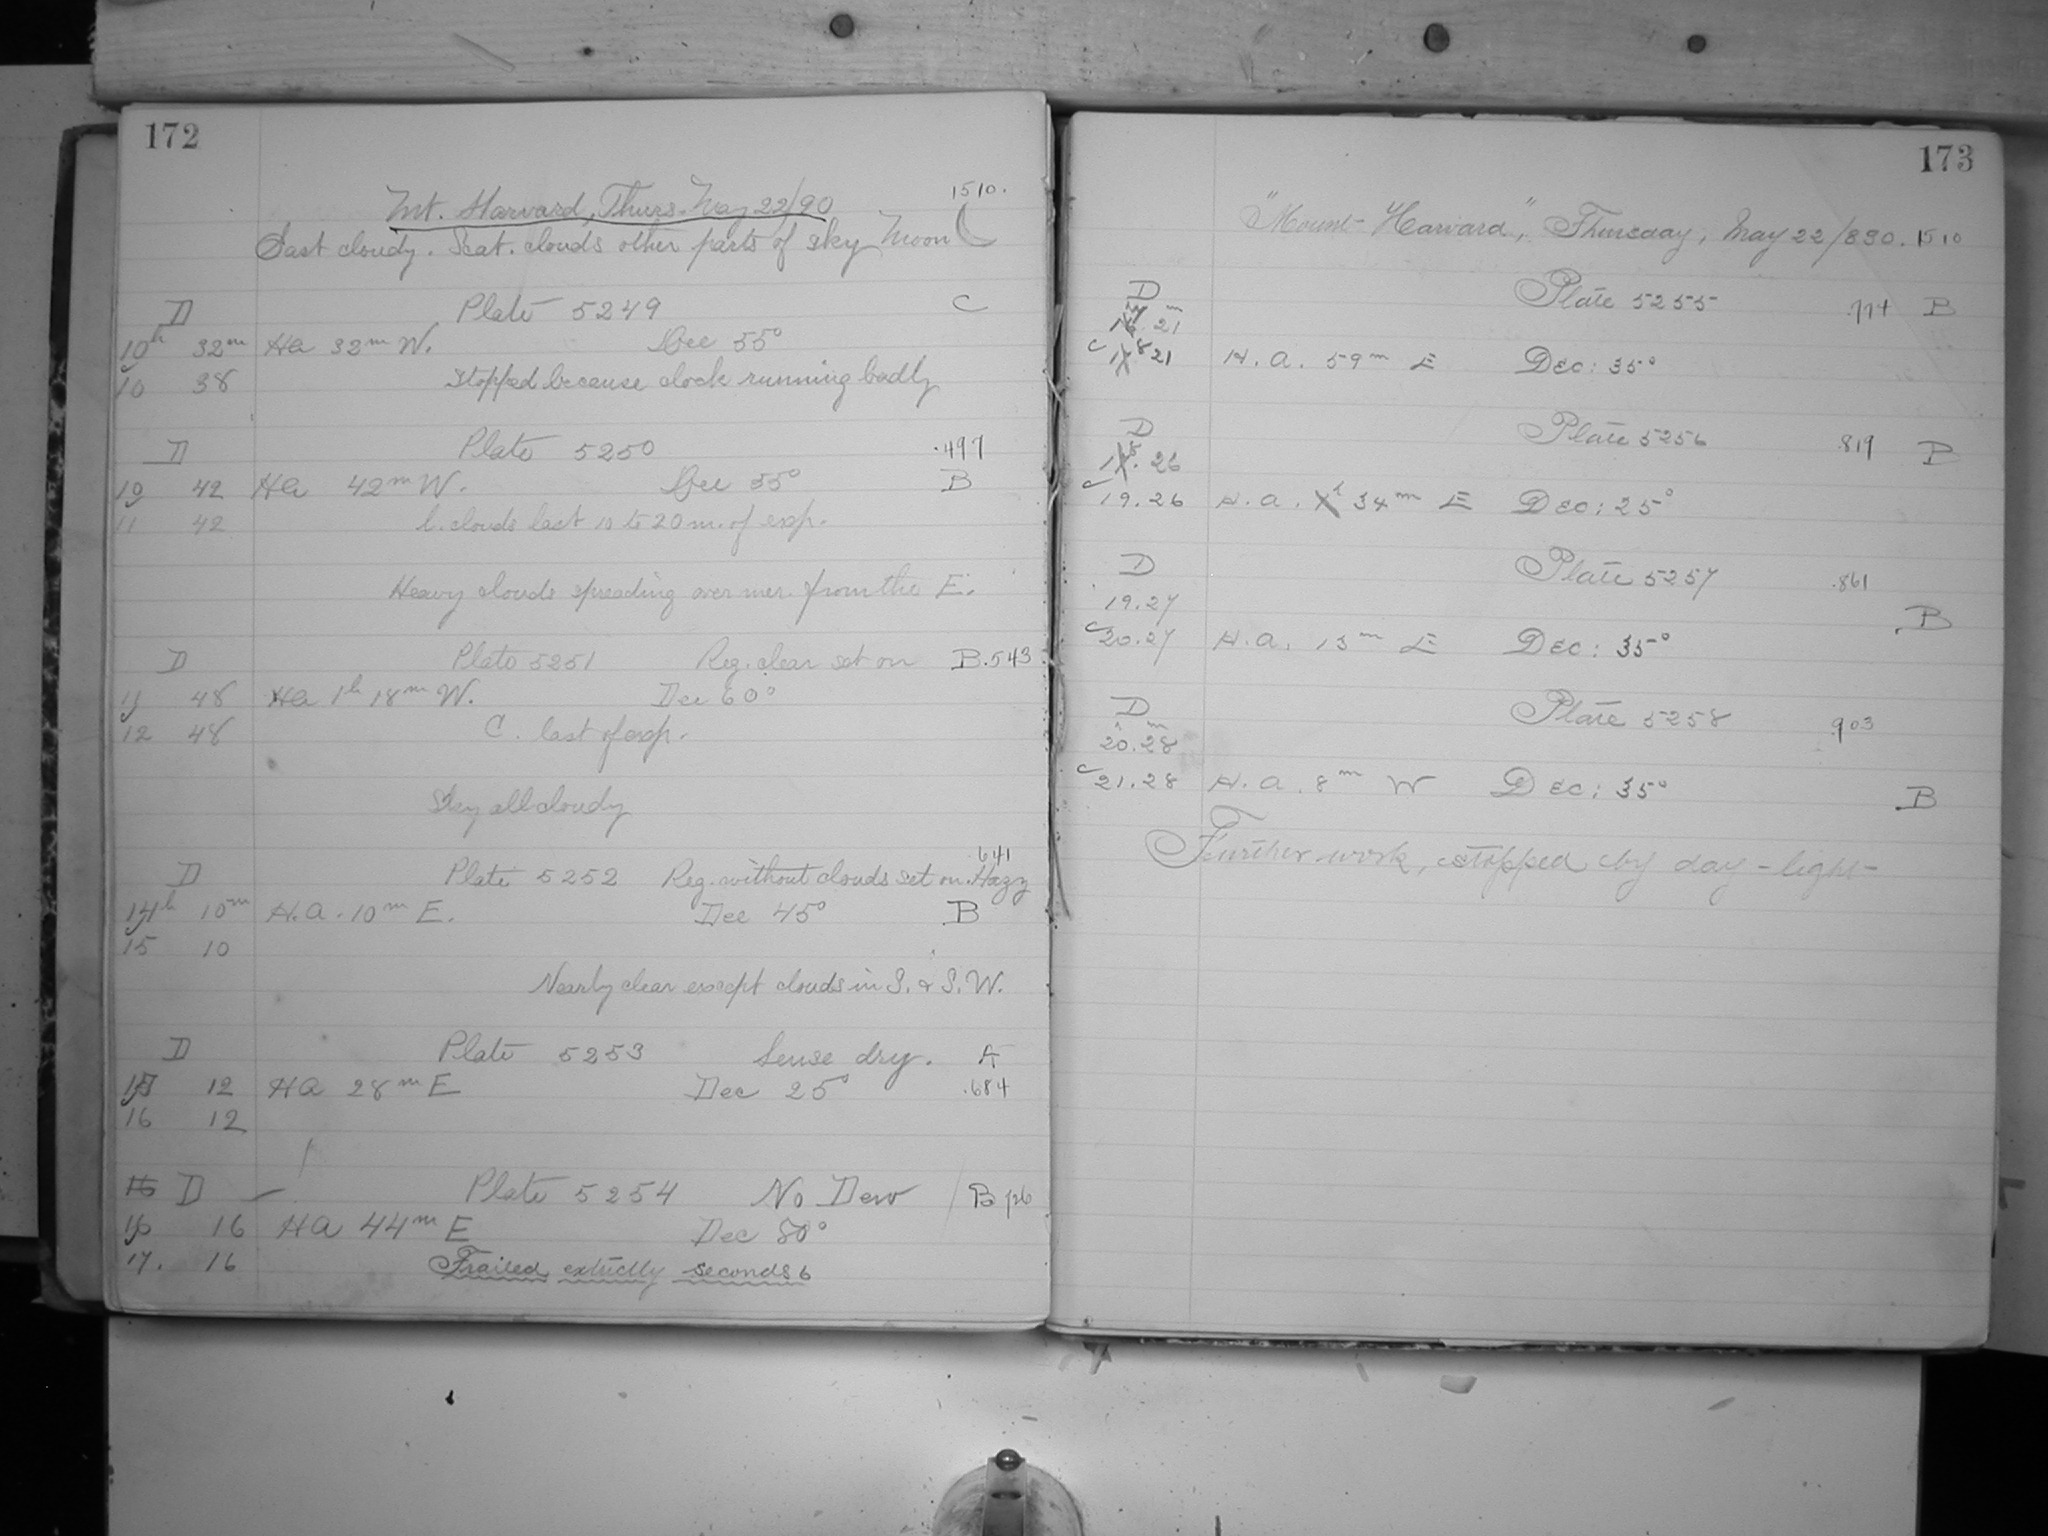 172
Mt. Harvard, Thurs. May 22/90 1510.
East cloudy. Scat. clouds other parts of sky Moon
D Plate 5249 C
10h 32m Ha 32m W. Dec 55°
10 38 Stopped because clock running badly
D Plate 5250 .497
10 42 Ha 42m W. Dec 55° B
11 42 C. clouds last 10 to 20 m. of exp.
Heavy clouds spreading over mer. from the E.
D Plate 5251 Reg. clear set on B .543
11 48 Ha 1h 18m W. Dec 60°
12 48 C. last of exp.
Sky all cloudy
.641
D Plate 5252 Reg. without clouds set on. Hazy
14h 10m H.a. 10m E. Dec 45° B
15 10
Nearly clear except clouds in S. & S.W.
D Plate 5253 Lense dry. A
15 12 HA 28m E Dec 25° .684
16 12
16 D Plate 5254 No Dew B
16 16 HA 44m E Dec 80°
17. 16 seconds 6
173
"Mount Harvard", Thursday, May 22/890. 1510
D Plate 5255 .774 B
17. 21m
18 21 H.a. 59m E Dec: 35°
D Plate 5256 .819 B
18. 26
19.26 H.a. 34m E Dec: 25°
D Plate 5257 .861
19.27 B
20.27 H.a. 13m E Dec: 35°
D Plate 5258 .903
20.28
21.28 H.a. 8m W Dec: 35° B
Further work, stopped by day-light-